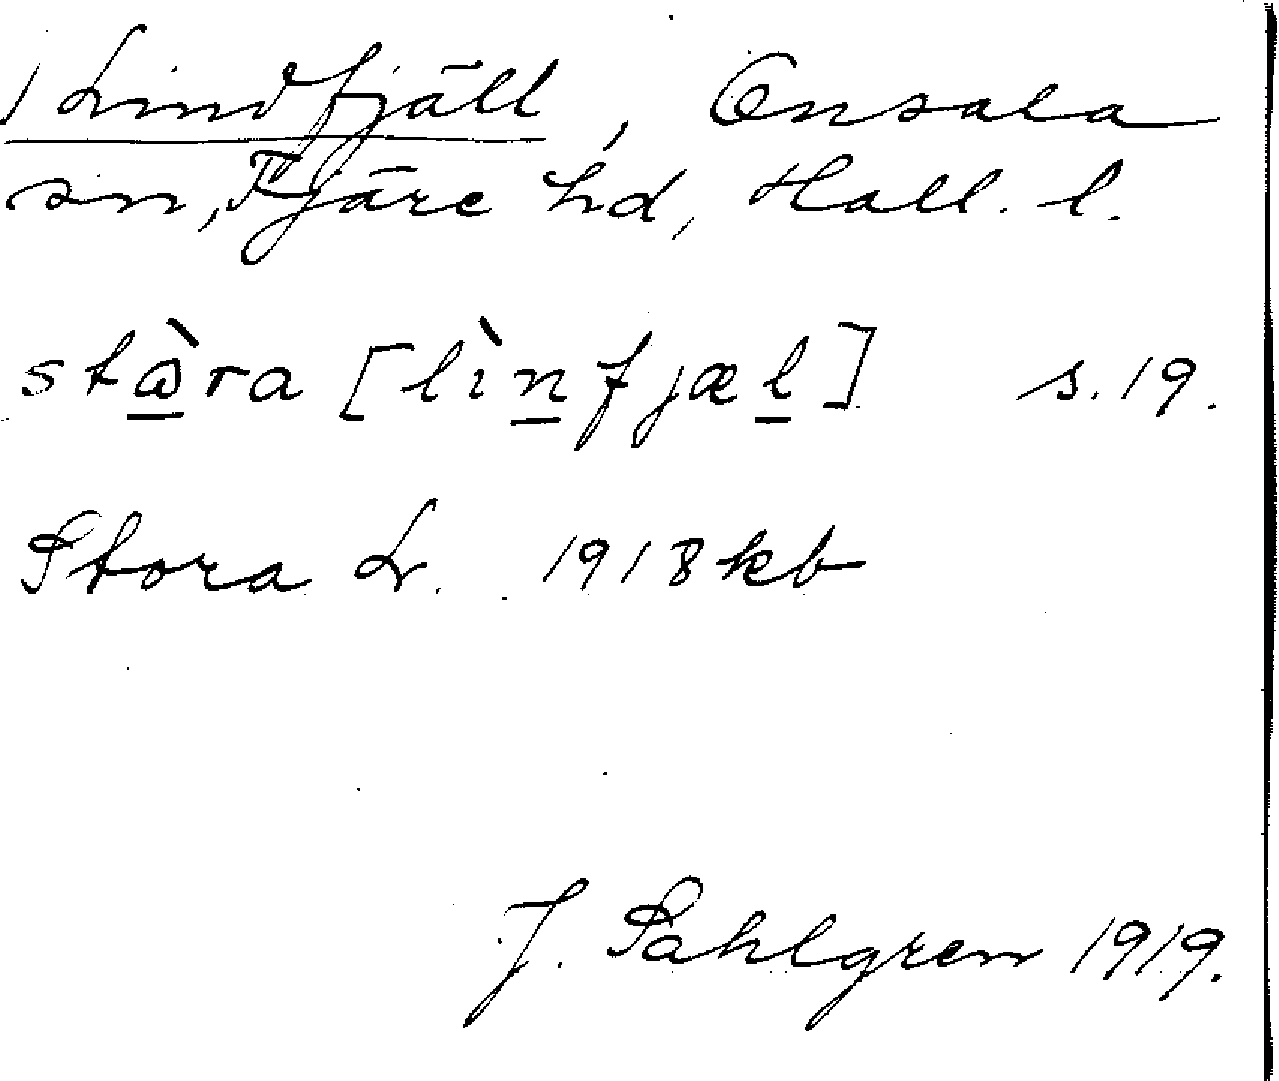 1 Lindfjäll, Onsala
sn, Fjäre hd, Hall. l.
stὼra [lìnfjæl] s. 19.
Stora L. 1918 kb
J. Sahlgren 1919.